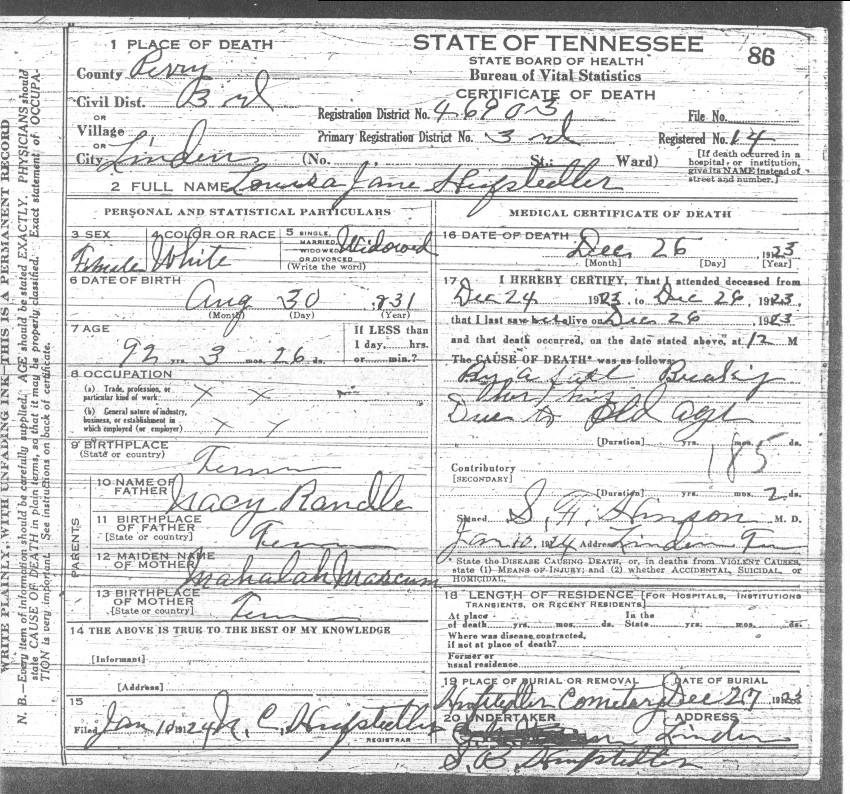 STATE OF TENNESSEE
STATE BOARD OF HEALTH
Bureau of Vital Statistics
CERTIFICATE OF DEATH
86
1 PLACE OF DEATH
County Perry
Civil Dist. 3 rd
OR
Village
OR
City Linden (No. St.; Ward)
Registration District No. 46903
Primary Registration District No. 3 rd
File No.
Registered No. 14
[If death occurred in a
hospital, or institution,
give its NAME instead of
street and number.]
2 FULL NAME Louisa Jane Hufstedler
PERSONAL AND STATISTICAL PARTICULARS
3 SEX
Female
4 COLOR OR RACE
White
5 SINGLE,
MARRIED,
WIDOWED
OR DIVORCED
(Write the word)
Widowed
6 DATE OF BIRTH
Aug 30 831
(Month) (Day) (Year)
7 AGE
92 yrs. 3 mos. 26 ds.
If LESS than
1 day, hrs.
or min.?
8 OCCUPATION
(a) Trade, profession, or
particular kind of work x x
(b) General nature of industry,
business, or establishment in
which employed (or employer) x y
9 BIRTHPLACE
(State or country) Tenn
PARENTS
10 NAME OF
FATHER Isacy Randle
11 BIRTHPLACE
OF FATHER
[State or country] Tenn
12 MAIDEN NAME
OF MOTHER Mahalah Marcum
13 BIRTHPLACE
OF MOTHER
[State or country] Tenn
14 THE ABOVE IS TRUE TO THE BEST OF MY KNOWLEDGE
[Informant]
[Address]
15
Filed Jan 10 19124 N. C. Hufstedler
REGISTRAR
MEDICAL CERTIFICATE OF DEATH
16 DATE OF DEATH Dec 26 1923
[Month] [Day] [Year]
17 I HEREBY CERTIFY, That I attended deceased from
Dec 24 1923, to Dec 26, 1923,
that I last saw her alive on Dec 26 1923
and that death occurred, on the date stated above, at 12 M
The CAUSE OF DEATH* was as follows:
By a fall Breaking
Due to Old age
[Duration] yrs. mos. ds.
185
Contributory
[SECONDARY]
[Duration] yrs. mos. 2 ds.
Signed S. F. Hinson M. D.
Jan 10, 1924 Address Linden Tn
* State the DISEASE CAUSING DEATH, or, in deaths from VIOLENT CAUSES,
state (1) MEANS OF INJURY; and (2) whether ACCIDENTAL, SUICIDAL, OR
HOMICIDAL.
18 LENGTH OF RESIDENCE [FOR HOSPITALS, INSTITUTIONS
TRANSIENTS, OR RECENT RESIDENTS]
At place of death yrs. mos. ds. In the State yrs. mos. ds.
Where was disease contracted,
if not at place of death?
Former or
usual residence
19 PLACE OF BURIAL OR REMOVAL
Hufstedler Cemetery
DATE OF BURIAL
Dec 27 1923
20 UNDERTAKER
S. B. Hufstedler
ADDRESS
Linden
WRITE PLAINLY, WITH UNFADING INK—THIS IS A PERMANENT RECORD
N. B.—Every item of information should be carefully supplied. AGE should be stated EXACTLY. PHYSICIANS should
state CAUSE OF DEATH in plain terms, so that it may be properly classified. Exact statement of OCCUPA-
TION is very important. See instructions on back of certificate.